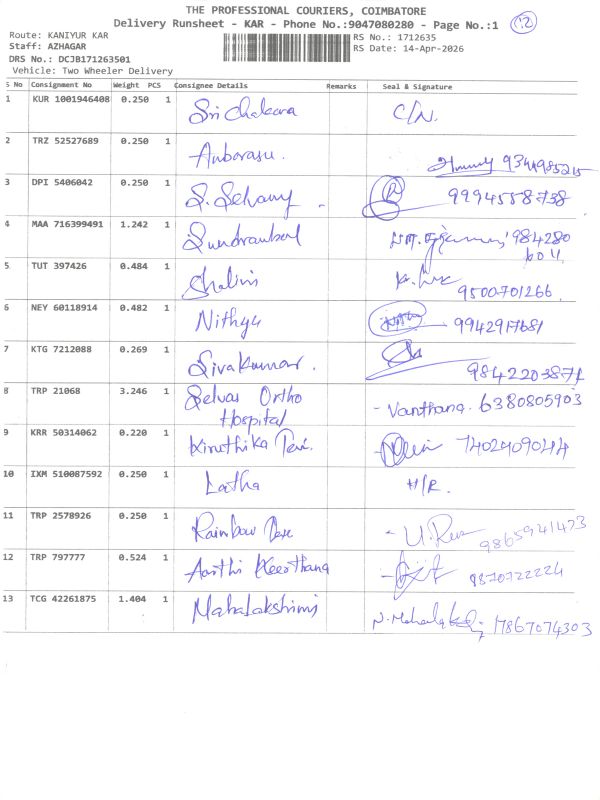 THE PROFESSIONAL COURIERS, COIMBATORE
Delivery Runsheet - KAR - Phone No.:9047080280 - Page No.:1 12
Route: KANIYUR KAR RS No.: 1712635
Staff: AZHAGAR RS Date: 14-Apr-2026
DRS No.: DCJB171263501
Vehicle: Two Wheeler Delivery
S No Consignment No Weight PCS Consignee Details Remarks Seal & Signature
1 KUR 1001946408 0.250 1 Sri Chakara C/N.
2 TRZ 52527689 0.250 1 Anbarasu. 9344985215
3 DPI 5406042 0.250 1 S. Selvany. 9994558738
4 MAA 716399491 1.242 1 984280
5 TUT 397426 0.484 1 Shalini 9500701266
6 NEY 60118914 0.482 1 Nithya 9942917681
7 KTG 7212088 0.269 1 Sivakumar. 9842203871
8 TRP 21068 3.246 1 Selvas Ortho - Vanthana. 6380805903
Hospital
9 KRR 50314062 0.220 1 Kiruthika 7402909044
10 IXM 510087592 0.250 1 Latha H/R.
11 TRP 2578926 0.250 1 Rainbow 9865941423
12 TRP 797777 0.524 1 Aarthi Keerthana 9870722224
13 TCG 42261875 1.404 1 Mahalakshimi 7867074303